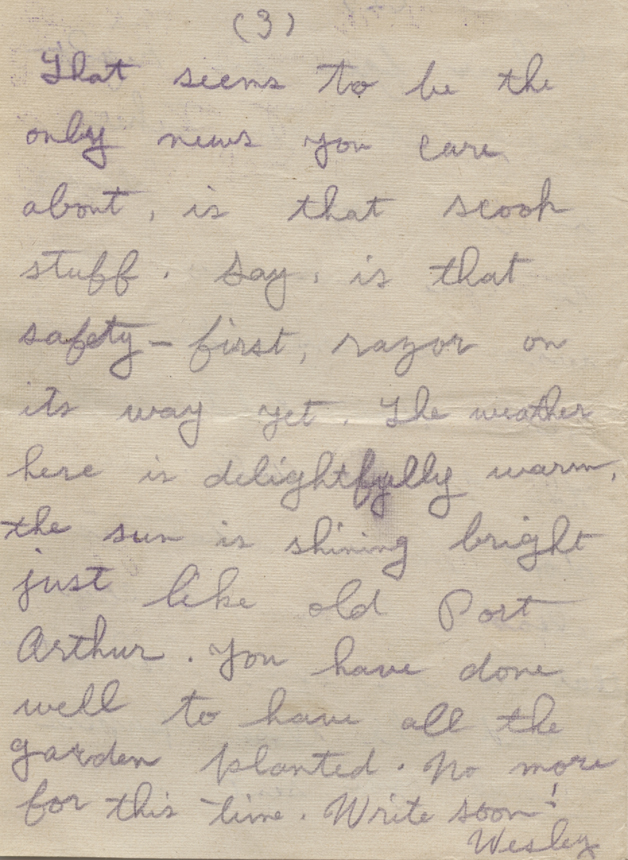 (3)
That seems to be the
only news you care
about, is that scoop
stuff. Say, is that
safety-first, razor on
its way yet. The weather
here is delightfully warm,
the sun is shining bright
just like old Port
Arthur. You have done
well to have all the
garden planted. No more
for this time. Write soon!
Wesley